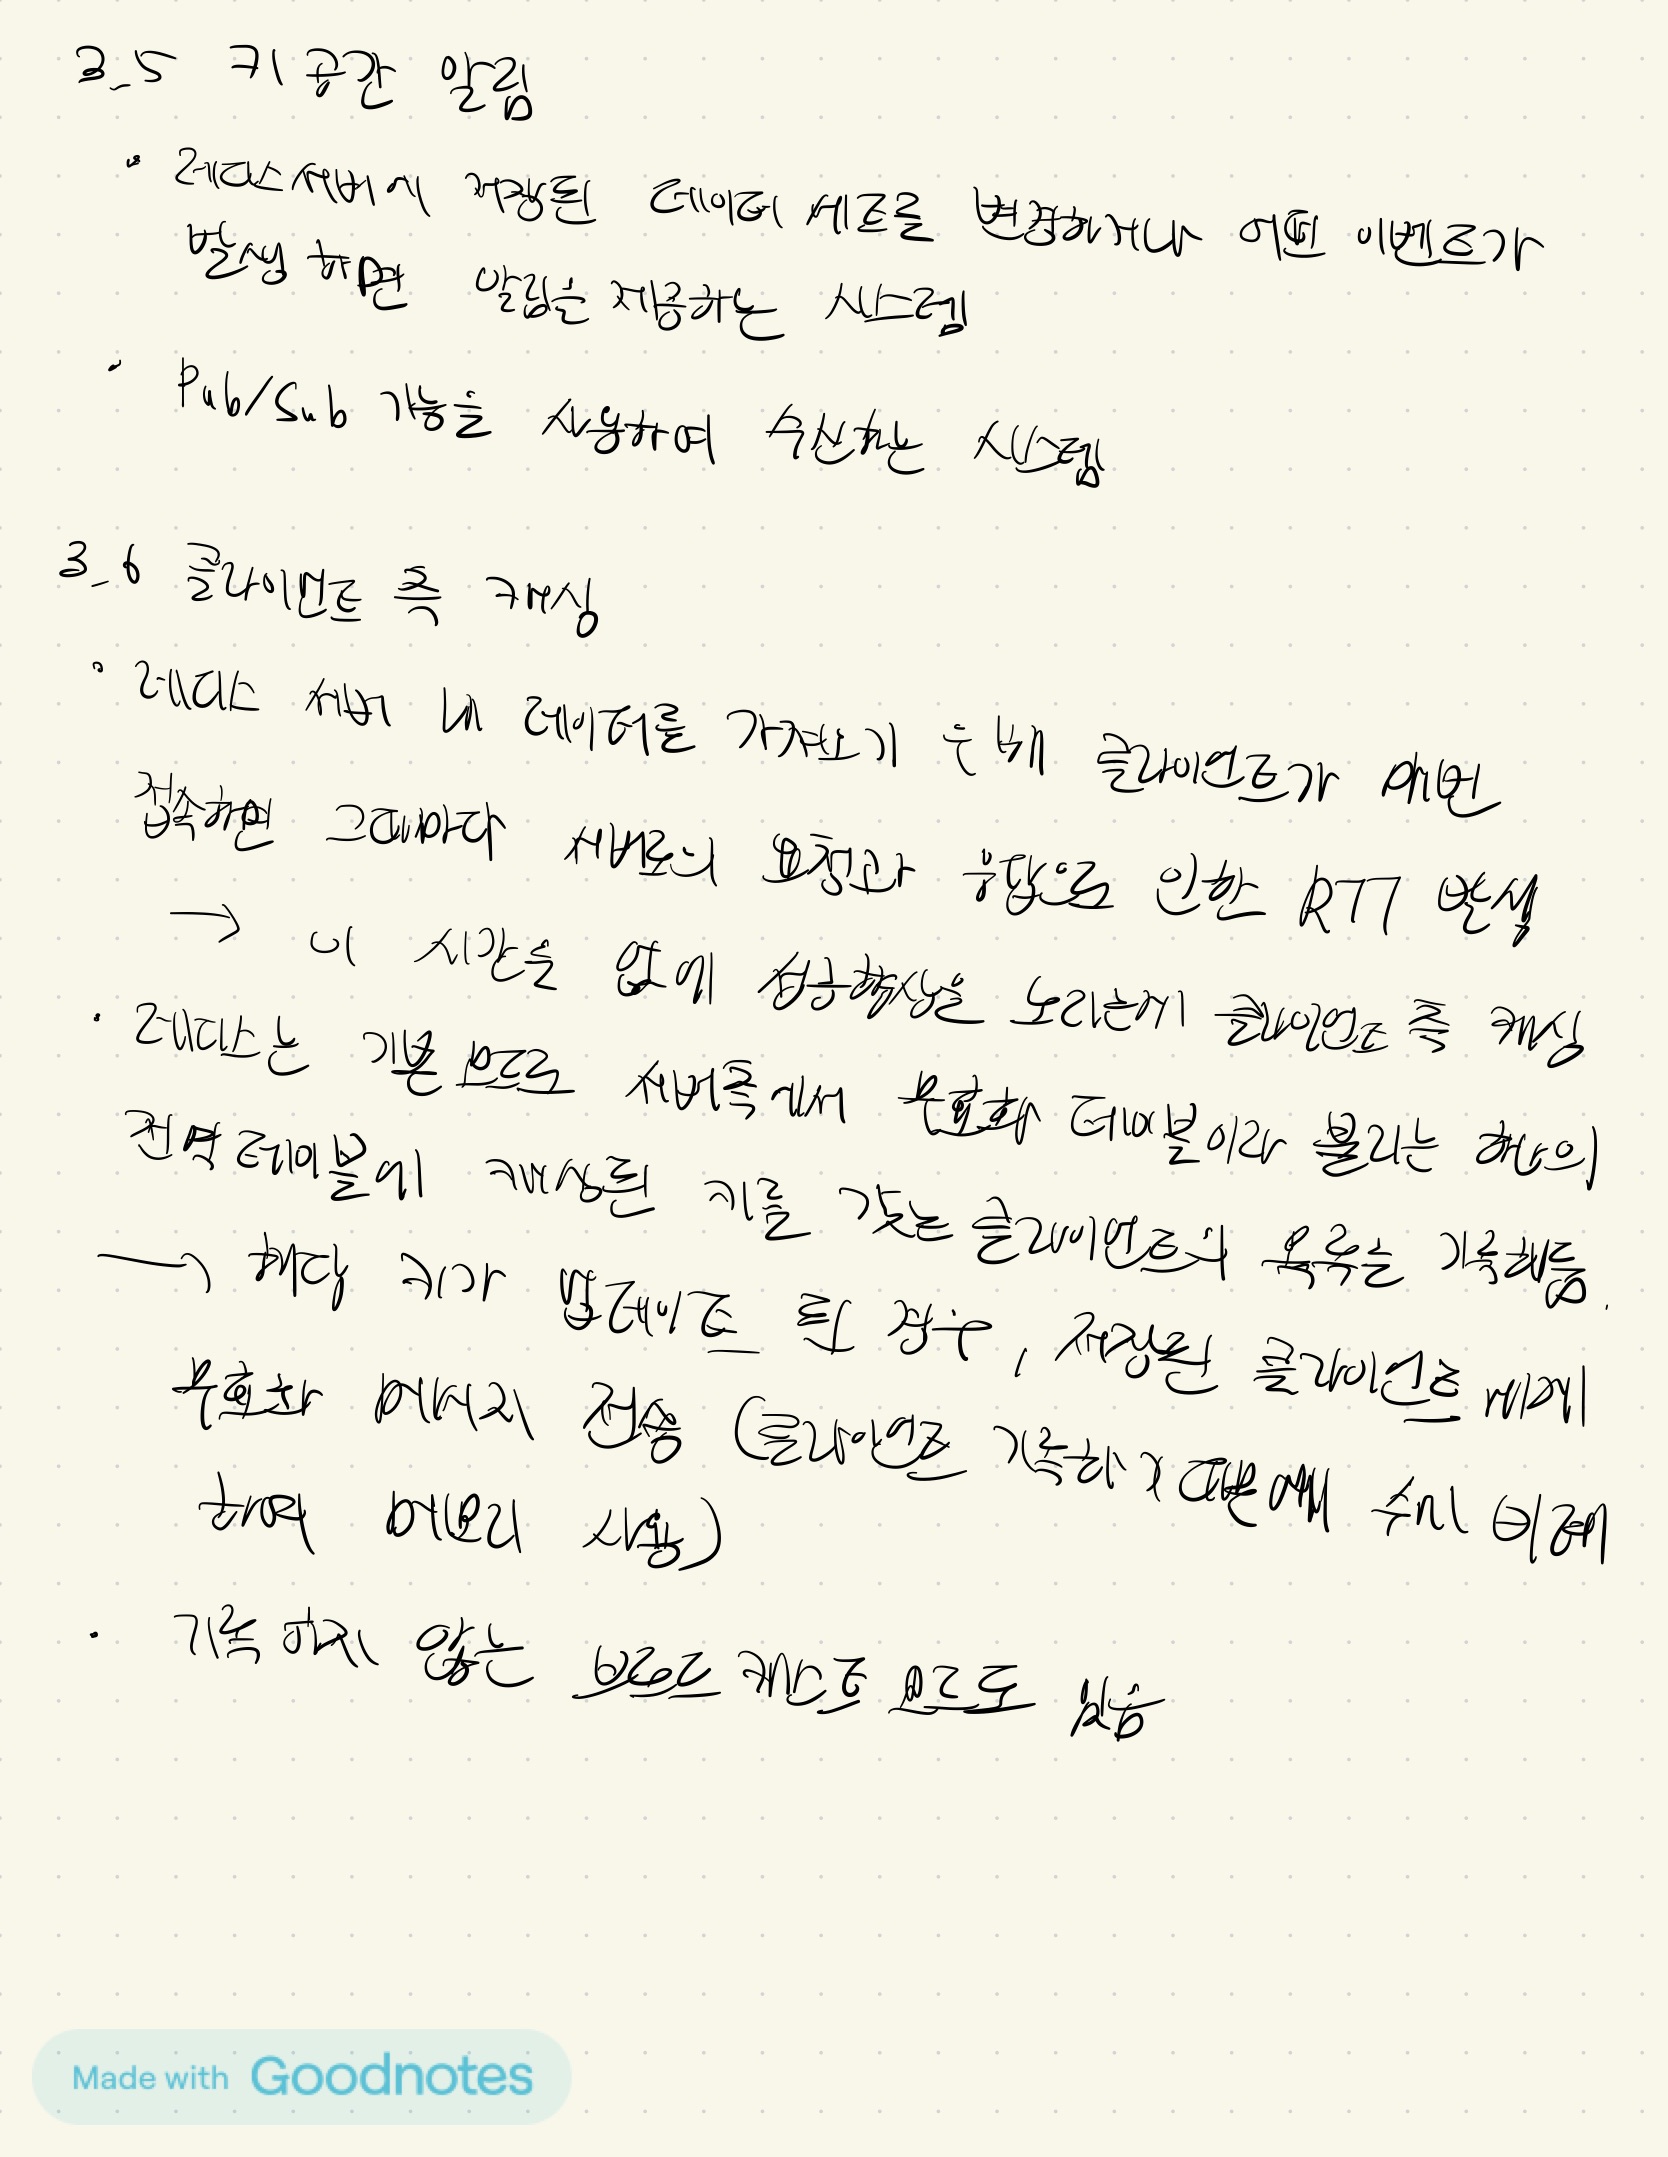 3_5 키 공간 알림
· 레디스 서버에 저장된 데이터 세트를 변경하거나 어떤 이벤트가
발생하면 알림을 제공하는 시스템
· Pub/Sub 기능을 사용하여 수신하는 시스템
3_6 클라이언트 측 캐싱
· 레디스 서버 내 데이터를 가져오기 위해 클라이언트가 매번
접속하면 그때마다 서버로의 요청과 응답으로 인한 RTT 발생
→ 이 시간을 없애 성능향상을 노리는게 클라이언트 측 캐싱
· 레디스는 기본 모드로 서버측에서 무효화 테이블이라 불리는 하나의
전역 테이블에 캐싱된 키를 갖는 클라이언트의 목록을 기록해둠.
→ 해당 키가 업데이트 된 경우, 저장된 클라이언트에게
무효화 메시지 전송 (클라이언트 기록하기 때문에 수에 비례
하여 메모리 사용)
· 기록하지 않는 브로드캐스트 모드도 있음
Made with Goodnotes